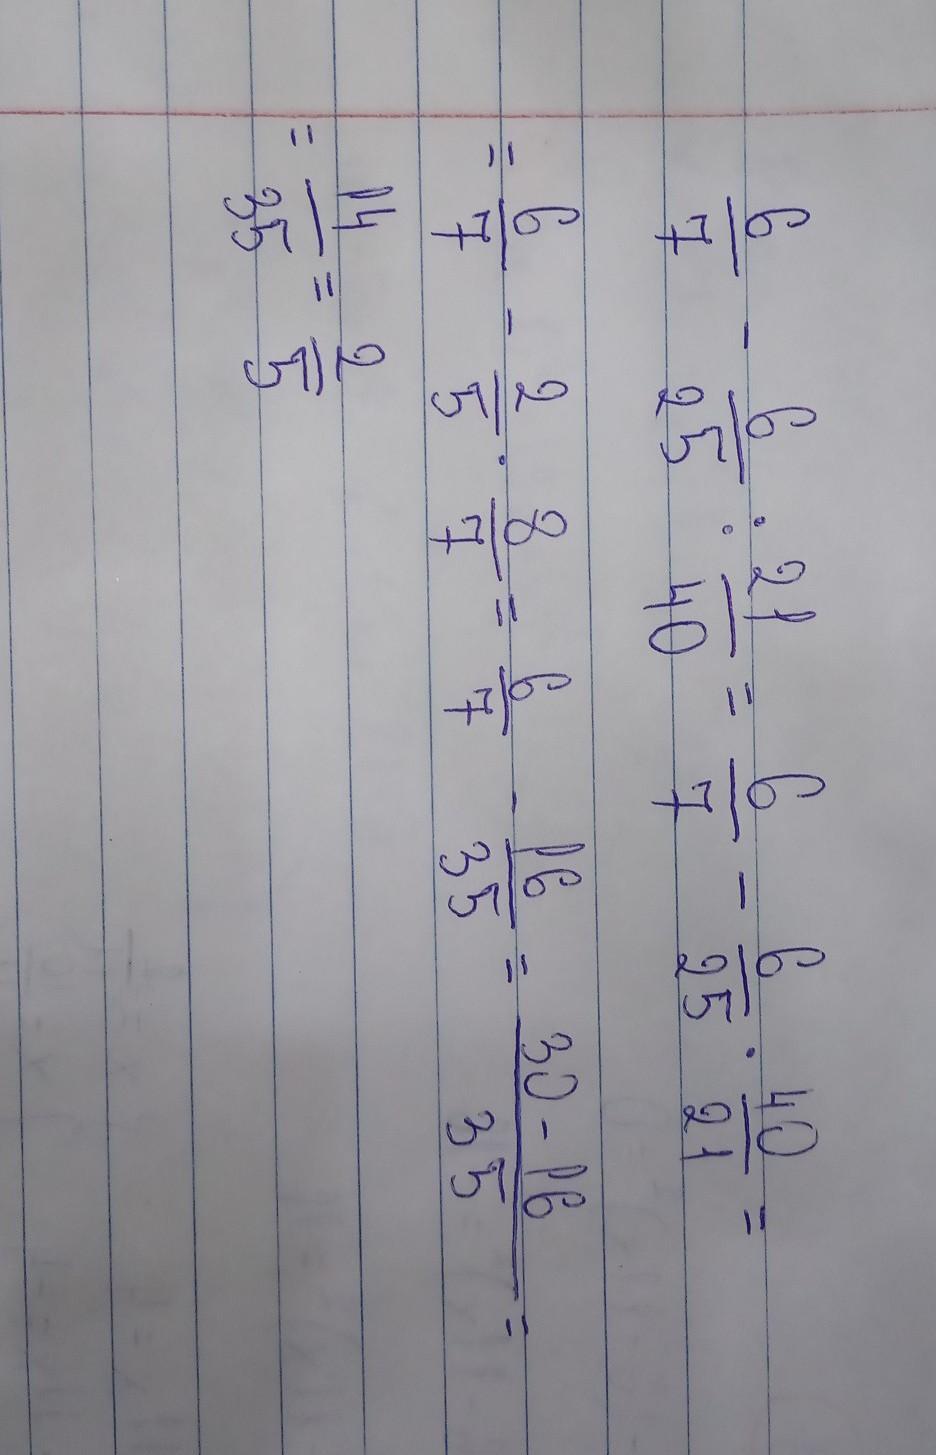 6/7 - 6/25 : 21/40 = 6/7 - 6/25 · 40/21 =
= 6/7 - 2/5 · 8/7 = 6/7 - 16/35 = (30 - 16)/35 =
= 14/35 = 2/5